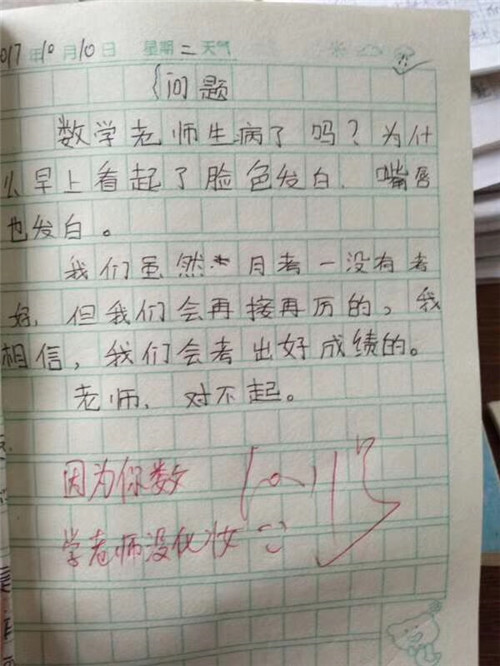 2017年10月10日 星期二 天气
问题
数学老师生病了吗？为什
么早上看起了脸色发白，嘴唇
也发白。
我们虽然月考一没有考
好，但我们会再接再厉的，我
相信，我们会考出好成绩的。
老师，对不起。
因为你数
学老师没化妆